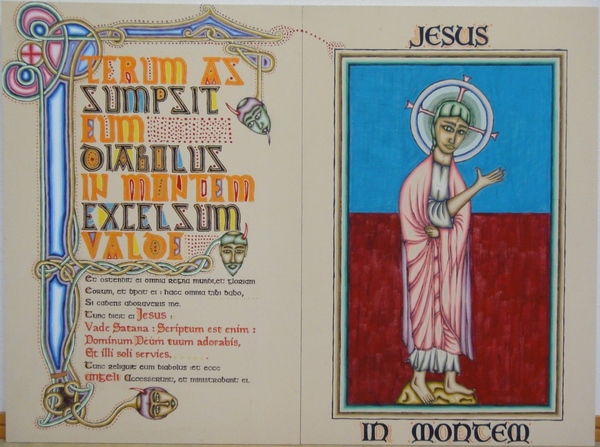 ITERUM AS
SUMPSIT
EUM
DIABOLUS
IN MONTEM
EXCELSUM
VALDE
Et ostendit ei omnia regna mundi, et gloriam
Eorum, et dixit ei : haec omnia tibi dabo,
Si cadens adoraveris me.
Tunc dicit ei Jesus :
Vade Satana : Scriptum est enim :
Dominum Deum tuum adorabis,
Et illi soli servies.
Tunc reliquit eum diabolus : et ecce
angeli Accesserunt, et ministrabant ei.
JESUS
IN MONTEM